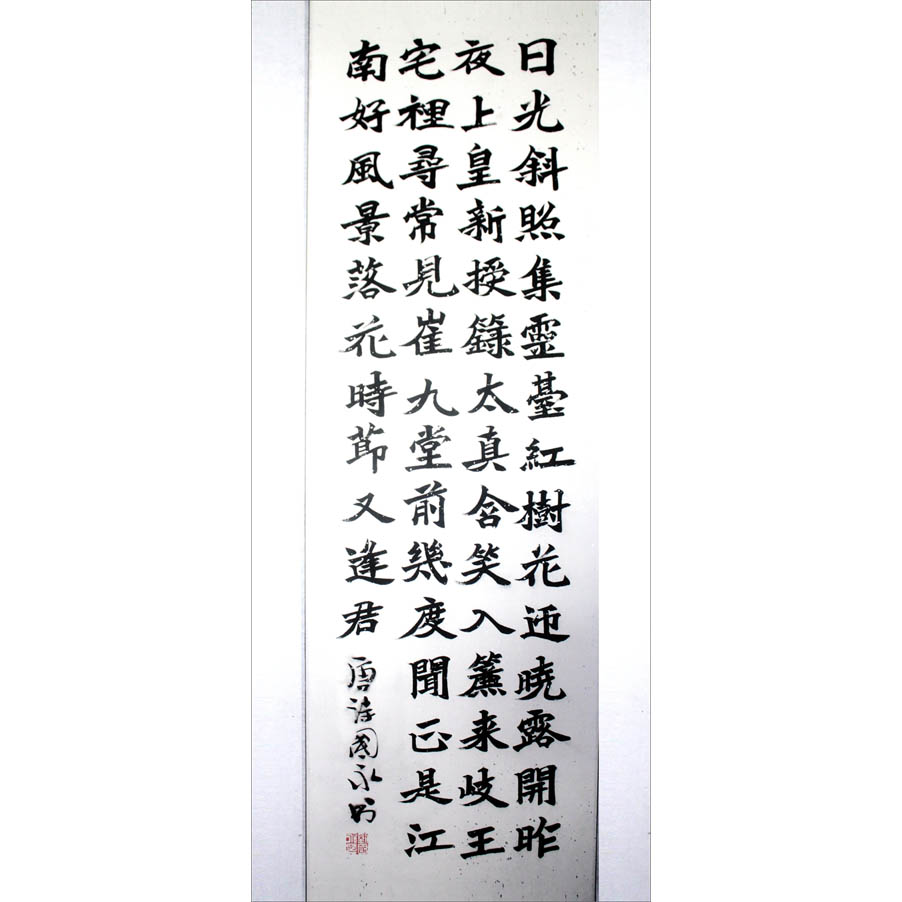 日光斜照集靈臺紅樹花迎暁露開昨
夜上皇新授籙太真含笑入簾来岐王
宅裡尋常見崔九堂前幾度聞正是江
南好風景落花時節又逢君 唐诗國永书